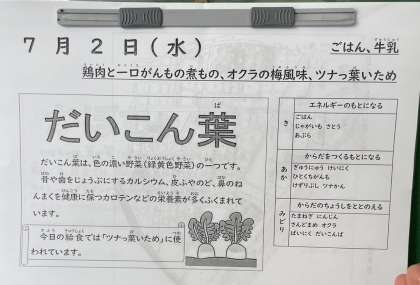 7月2日(水)
ごはん、牛乳
鶏肉と一口がんもの煮もの、オクラの梅風味、ツナっ葉いため
だいこん葉
だいこん葉は、色の濃い野菜(緑黄色野菜)の一つです。
骨や歯をじょうぶにするカルシウム、皮ふやのど、鼻のね
んまくを健康に保つカロテンなどの栄養素が多くふくまれて
います。
今日の給食では「ツナっ葉いため」に使
われています。
き
エネルギーのもとになる
ごはん
じゃがいも さとう
あぶら
あか
からだをつくるもとになる
ぎゅうにゅう けいにく
ひとくちがんも
けずりぶし ツナかん
みどり
からだのちょうしをととのえる
たまねぎ にんじん
さんどまめ オクラ
ばいにく だいこんば